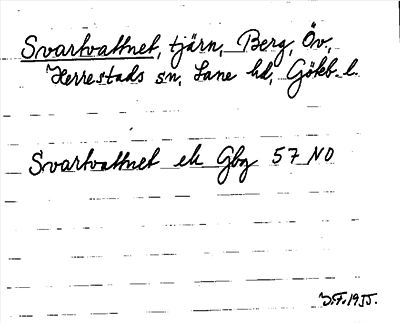 Svartvattnet, tjärn, Berg, Öv.,
Herrestads sn, Lane hd, Göteb. l.
Svartvattnet ek Gbg 57 NO
J.F. 1955.